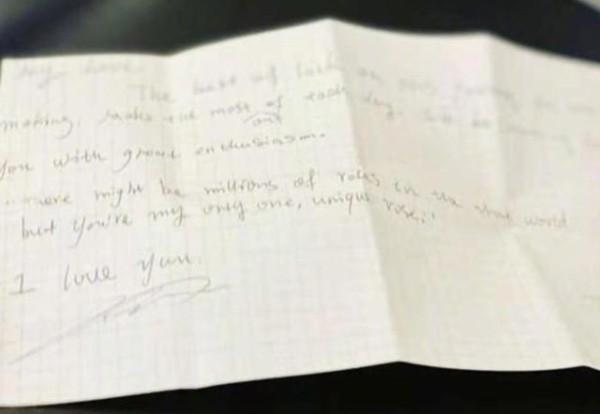 My love
The best of luck on
morning. make the most of each day.
out
you with great enthusiasm.
"There might be millions of roses in the world
but you're my only one, unique rose."
I love you.